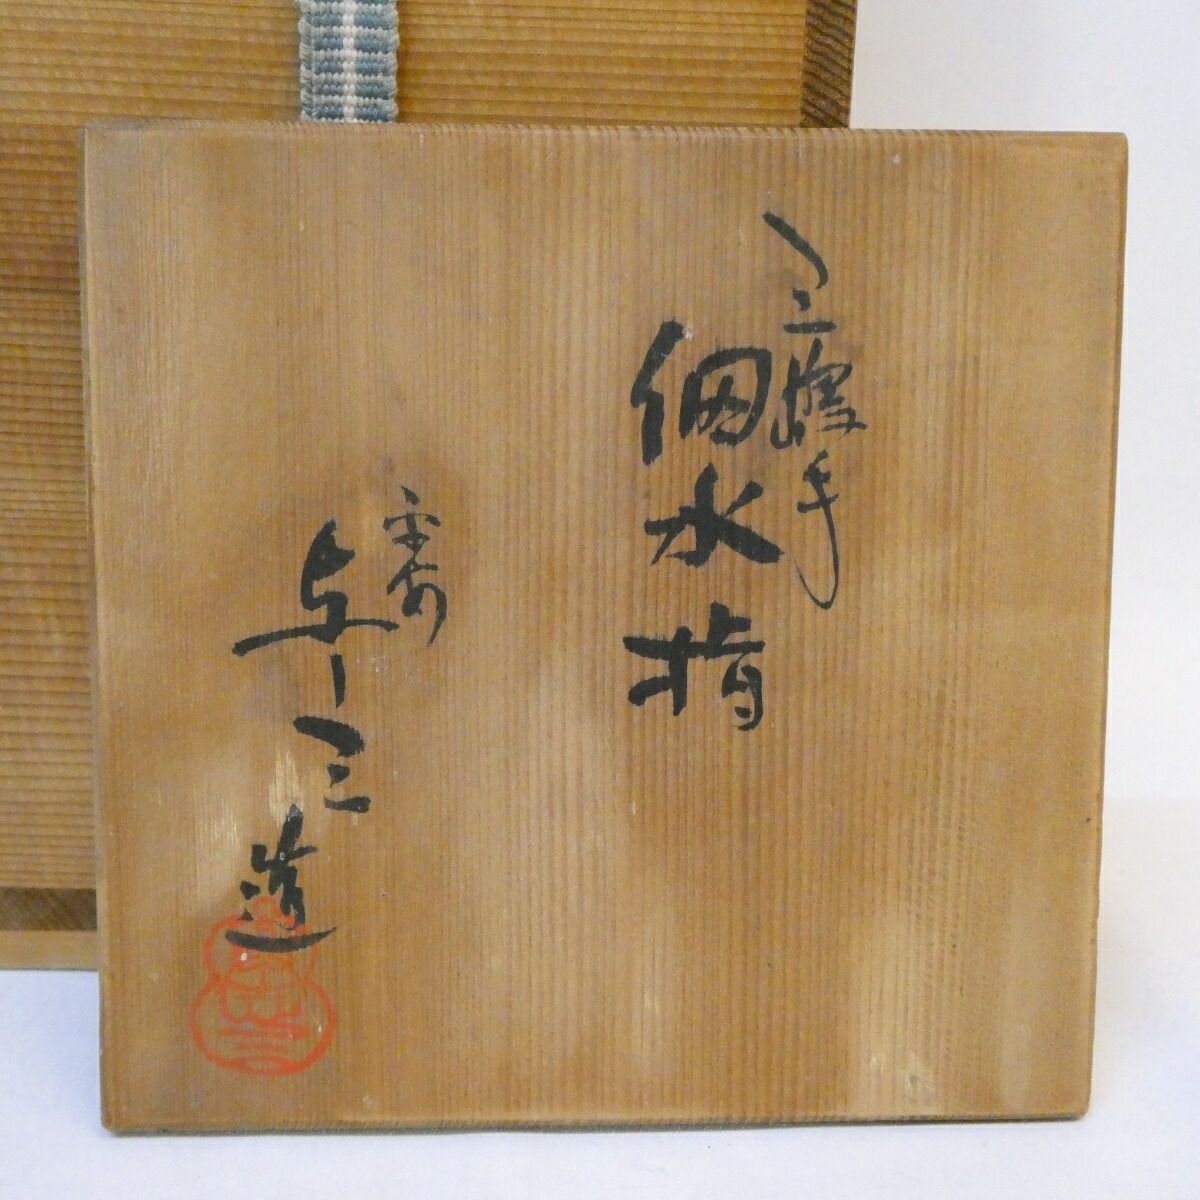 三嶋手
細水指
与三造